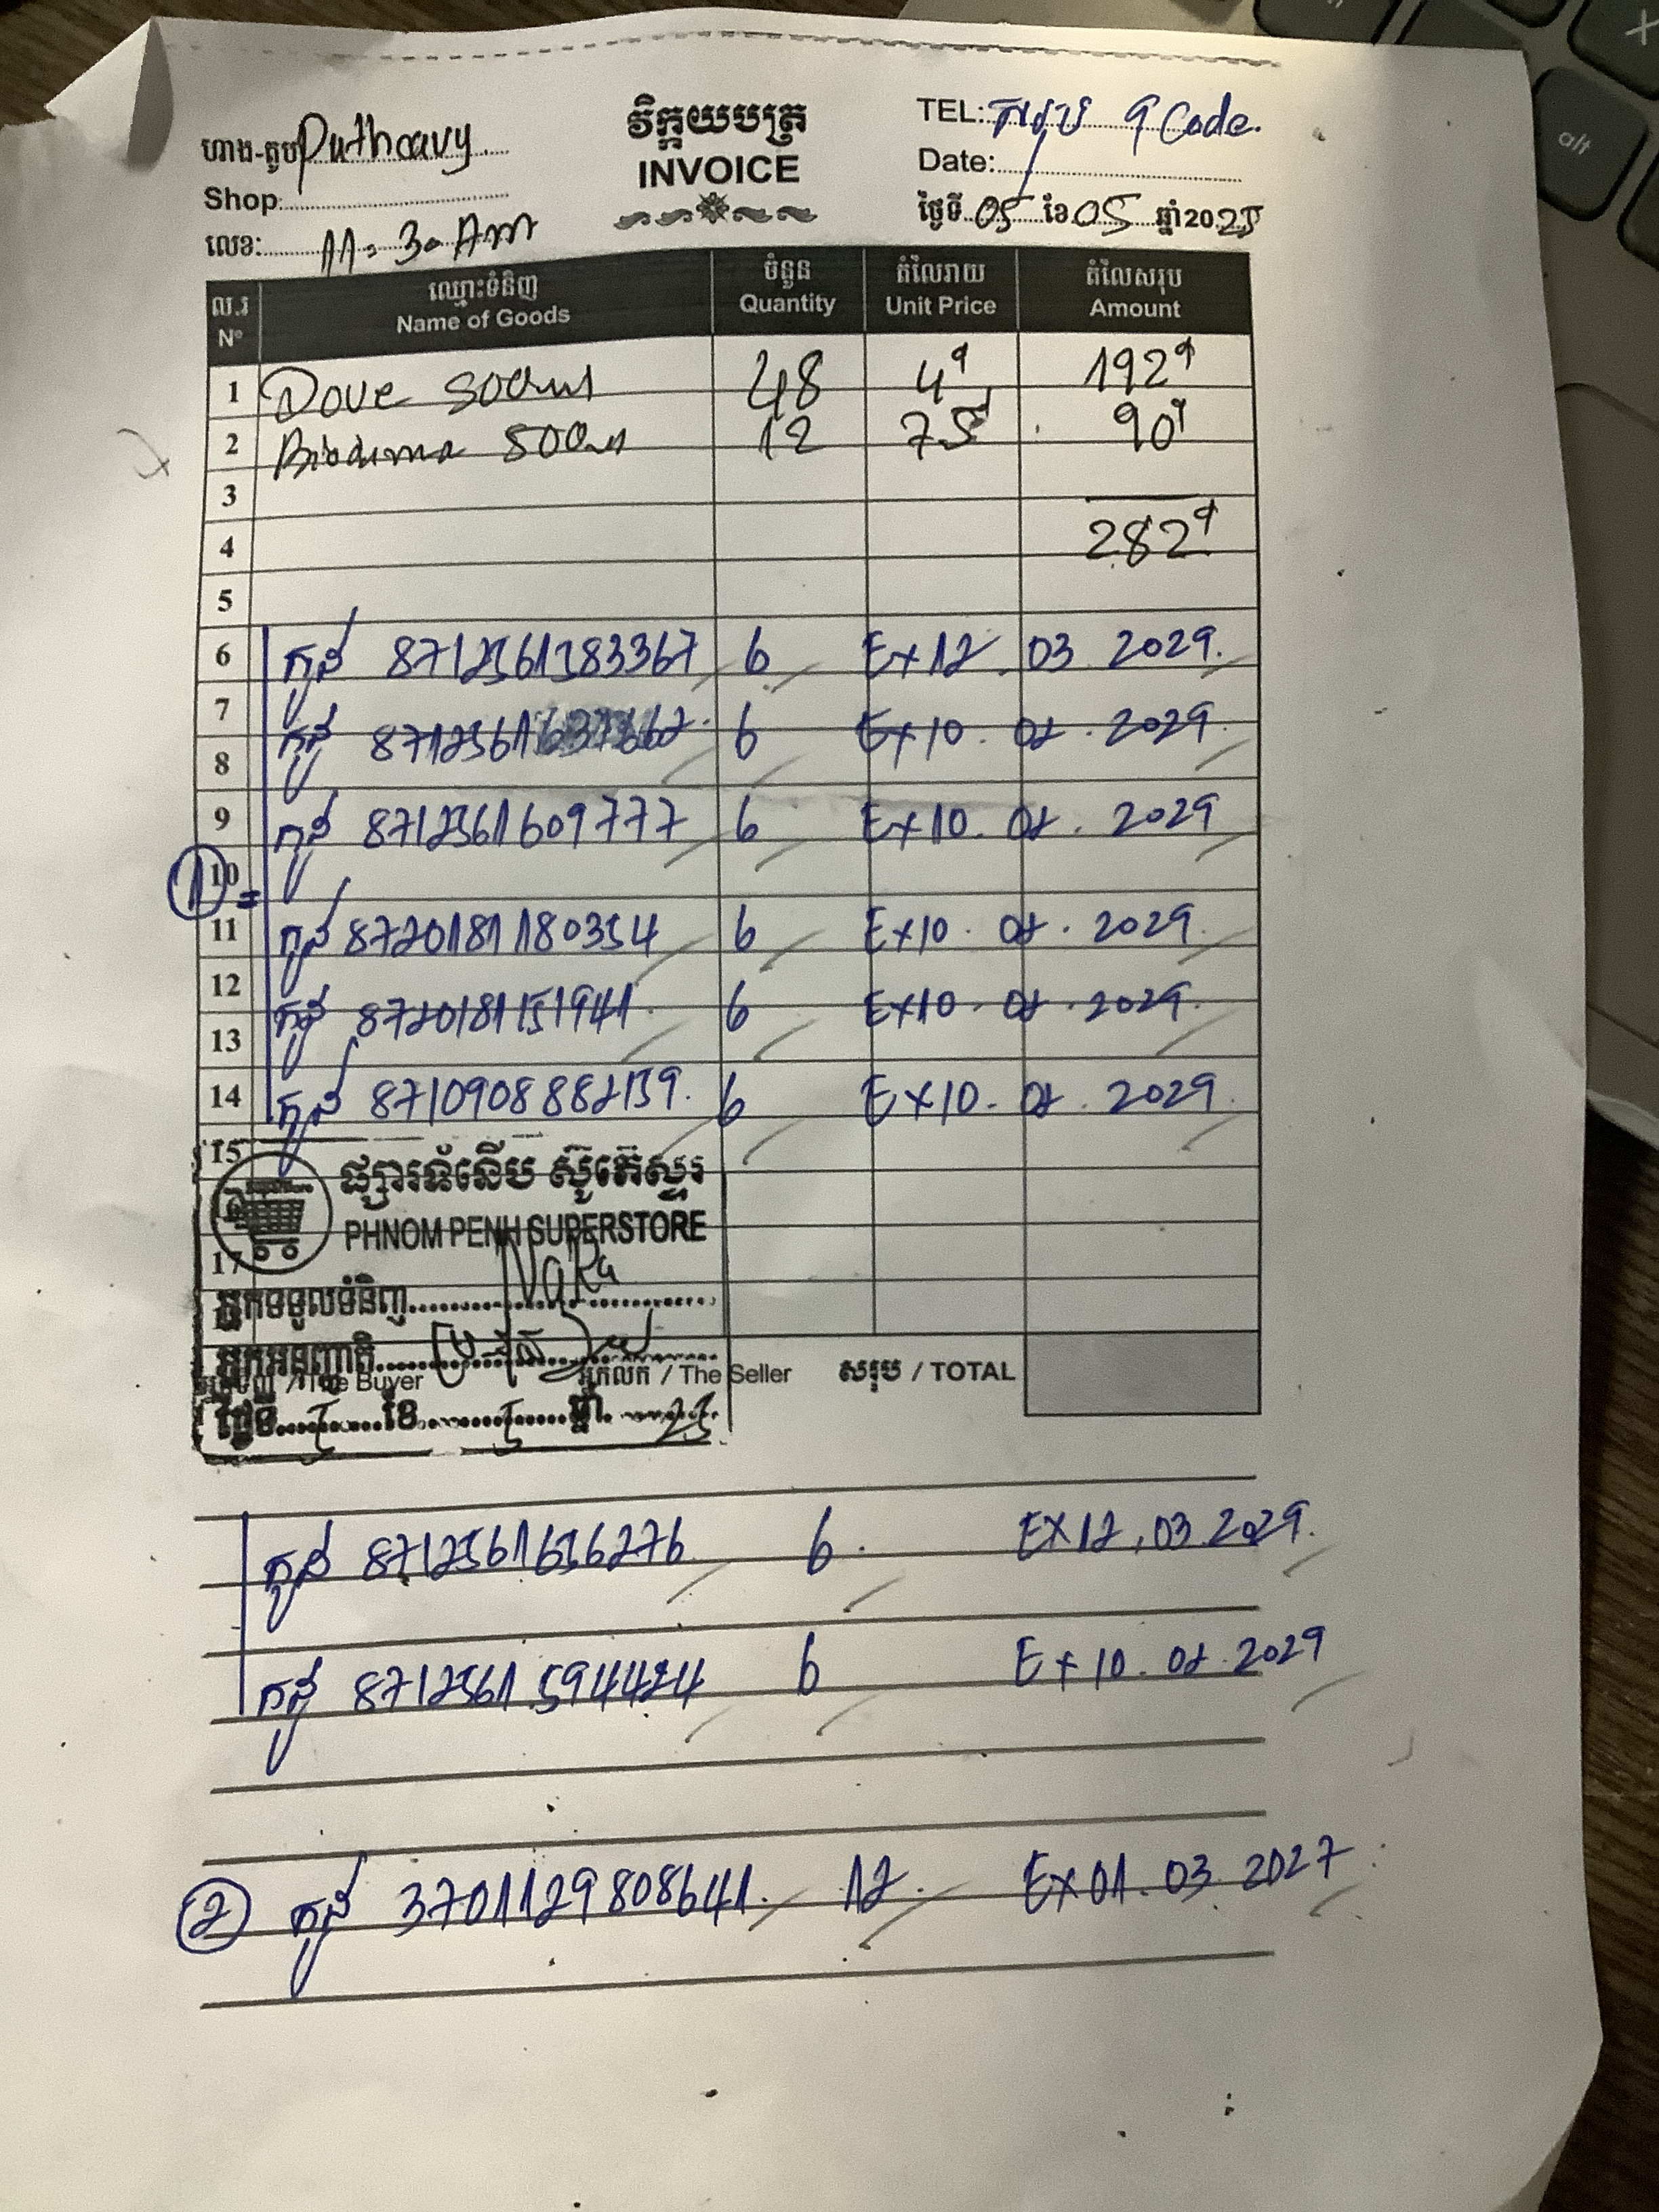 ហាង-តូប Putheavy
Shop:
លេខ: 11:30 Am
វិក្កយបត្រ
INVOICE
TEL: សរុប 9 Code.
Date:
ថ្ងៃទី 05 ខែ 05 ឆ្នាំ 2025
ល.រ ឈ្មោះទំនិញ ចំនួន តំលៃរាយ តំលៃសរុប
Nº Name of Goods Quantity Unit Price Amount
1 Dove 500ml 48 4 192
2 500ml 12 75 90
3
4 282
5
6 កូដ 8712561383367 6 Ex 12 . 03 . 2029.
7
8 កូដ 6 Ex 10 . 02 . 2029.
9 កូដ 8712561609777 6 Ex 10 . 02 . 2029
① 10 =
11 កូដ 8720181180354 6 Ex 10 . 02 . 2029.
12
13 កូដ 8720181151941 6 Ex 10 . 02 . 2029.
14 កូដ 8710908882159. 6 Ex 10 . 02 . 2029.
15
ផ្សារទំនើប ស៊ូភើស្ទ័រ
PHNOM PENH SUPERSTORE
17
អ្នកទទួលទំនិញ NaRa
អ្នកអនុញ្ញាតិ
អ្នកទិញ / The Buyer អ្នកលក់ / The Seller សរុប / TOTAL
ថ្ងៃទី 5 ខែ 5 ឆ្នាំ 25
កូដ 8712561636276 6 . EX 12 . 03 . 2029.
កូដ 8712561594424 6 Ex 10 . 02 . 2029
② កូដ 3701129808641. 12 . Ex 01 . 03 . 2027